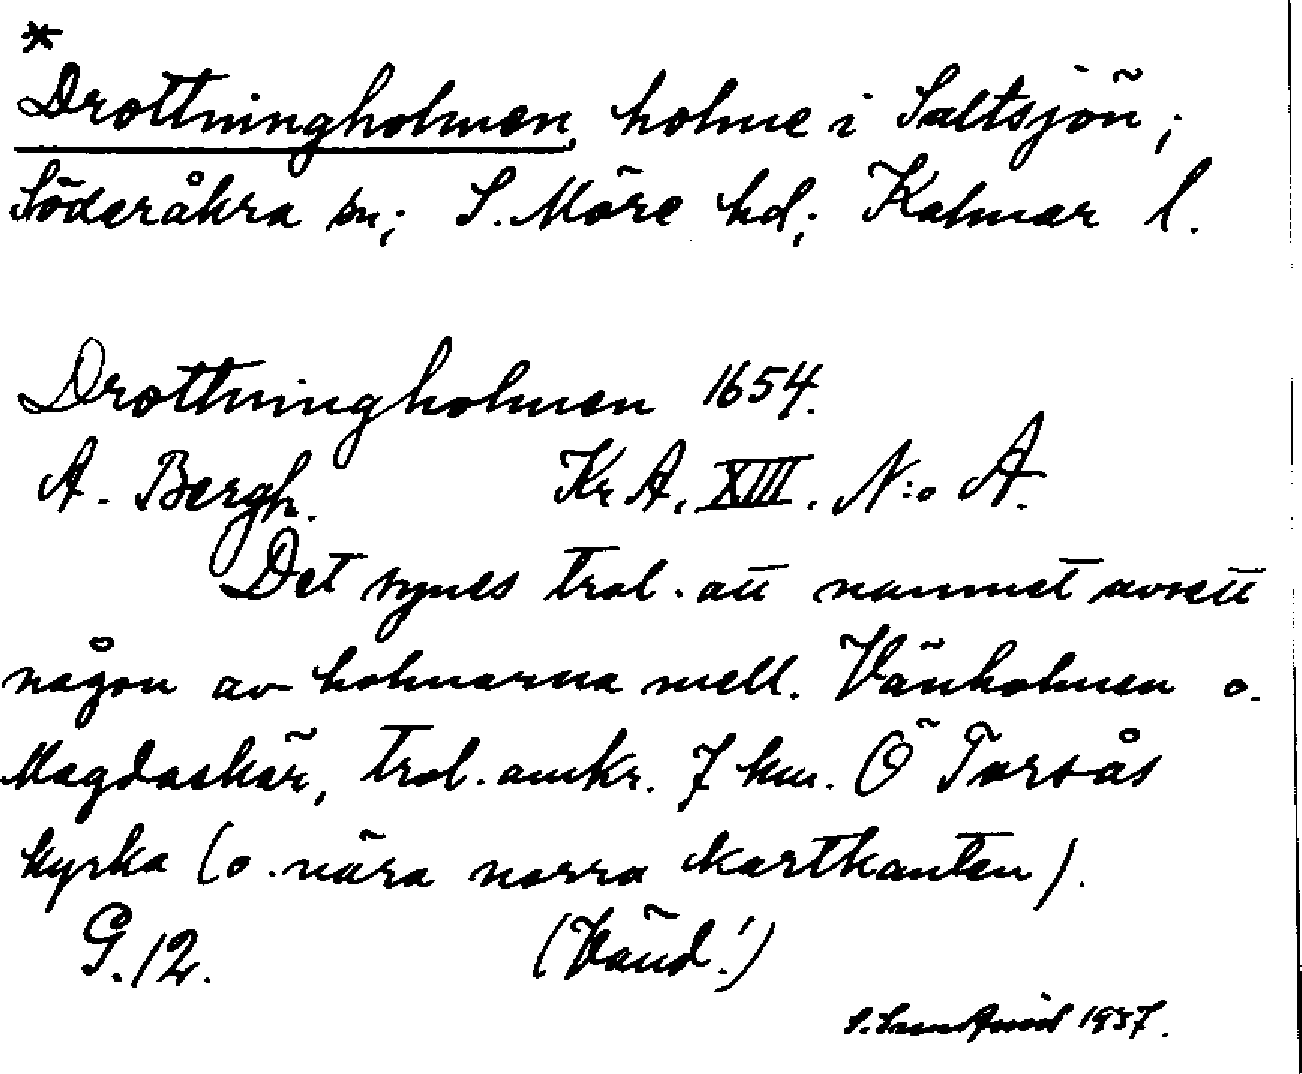 *
Drottningholmen, holme i Saltsjön;
Söderåkra sn; S. Möre hd; Kalmar l.
Drottningholmen 1654.
A. Bergh. Kr A. XIII. N:o A.
Det synes trol. att namnet avsett
någon av holmarna mell. Vänholmen o.
Magdaskär, trol. omkr. 7 km. Ö Torsås
kyrka (o. nära norra kartkanten).
G. 12. (Vänd!)
1937.